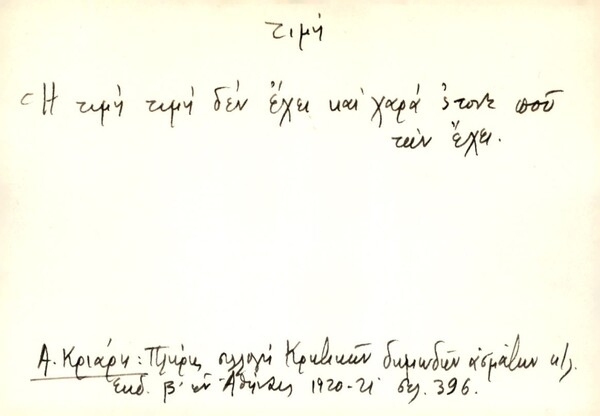 τιμή
Ἡ τιμή τιμή δέν ἔχει καί χαρά 'ς τονε ποῦ
τήν ἔχει.
Α. Κριάρη: Πλήρης συλλογή Κρητικῶν δημωδῶν ἀσμάτων κ/λ.
Ἐκδ. β' ἐν Ἀθήναις 1920-21 σελ. 396.